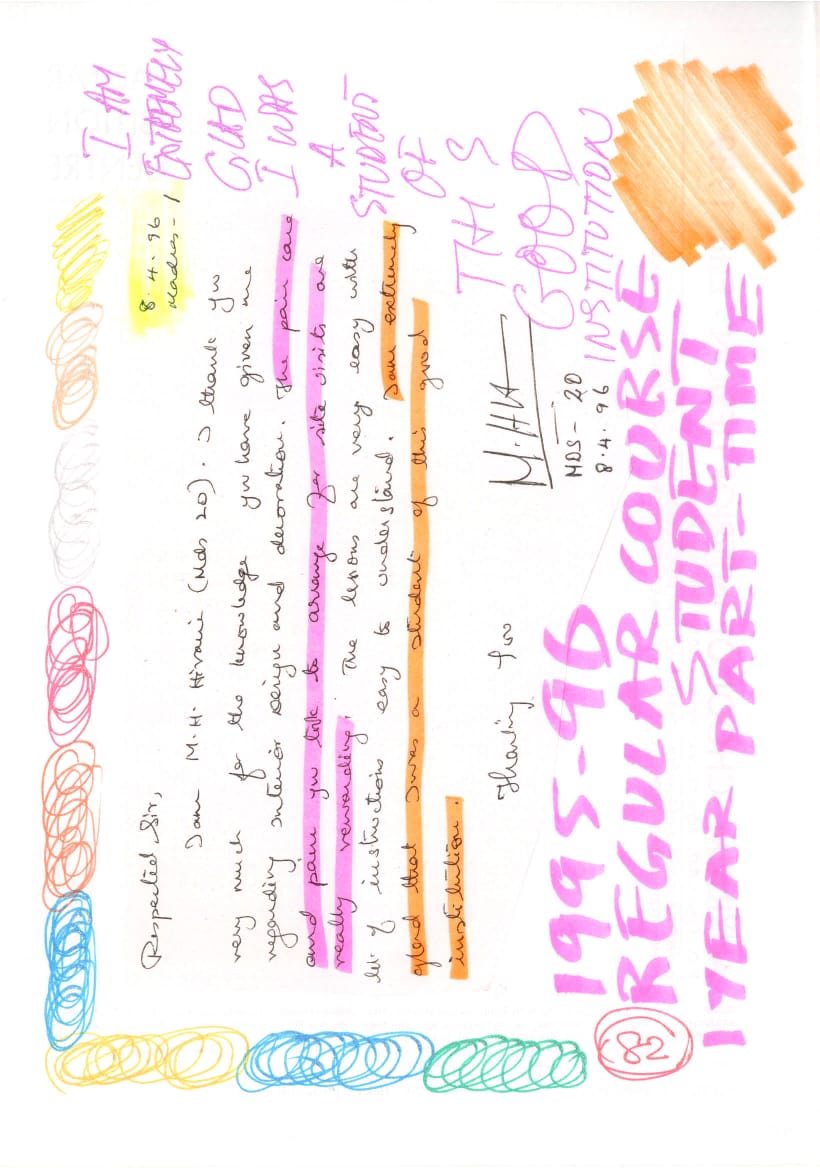 8.4.96
Madras-1
Respected Sir,
I am M.H. Hirani (Mds 20). I thank yu
very much for the knowledge yu have given me
regarding interior design and decoration. The pain care
and pain yu took to arrange for site visits are
really rewarding. The lessons are very easy with
lot of instructions easy to understand. I am extremely
glad that I was a student of this good
institution.
Thanking You
M.H.H
MDS-20
8.4.96
I AM
EXTREMELY
GLAD
I WAS
A
STUDENT
OF
THS
GOOD
INSTITUTION
1995-96
REGULAR COURSE
STUDENT
1 YEAR PART-TIME
82